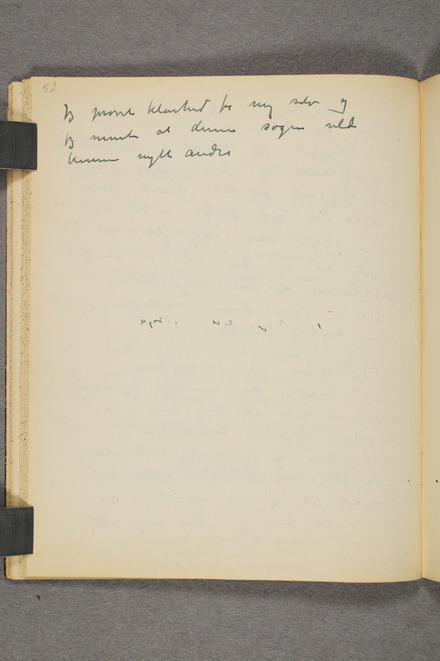 52
Jeg prøvet klarhed for mig selv og
Jeg mente at denne søgen vilde
kunne nytte andre